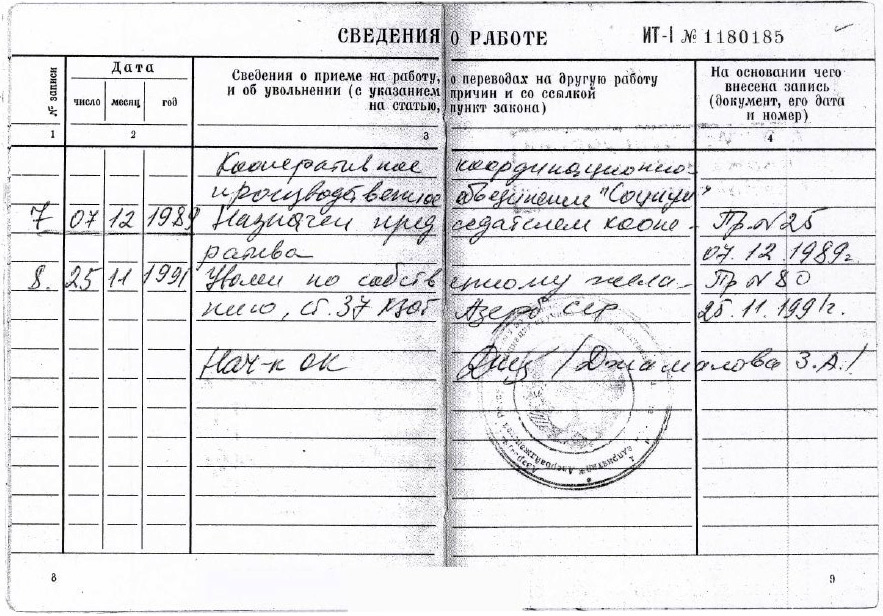 СВЕДЕНИЯ О РАБОТЕ ИТ-I № 1180185
№ записи
Дата
число месяц год
Сведения о приеме на работу, о переводах на другую работу
и об увольнении (с указанием причин и со ссылкой
на статью, пункт закона)
На основании чего
внесена запись
(документ, его дата
и номер)
1 2 3 4
Кооперативное координационно-
производственное объединение "Социум"
7 07 12 1989 Назначен председателем коопе- Пр. № 25
ратива 07.12.1989г.
8. 25 11 1991 Уволен по собственному жела- Пр № 80
нию, ст. 37 КЗОТ Азерб ССР 25.11.1991г.
Нач-к ОК /Джамалова З.А./
8 9